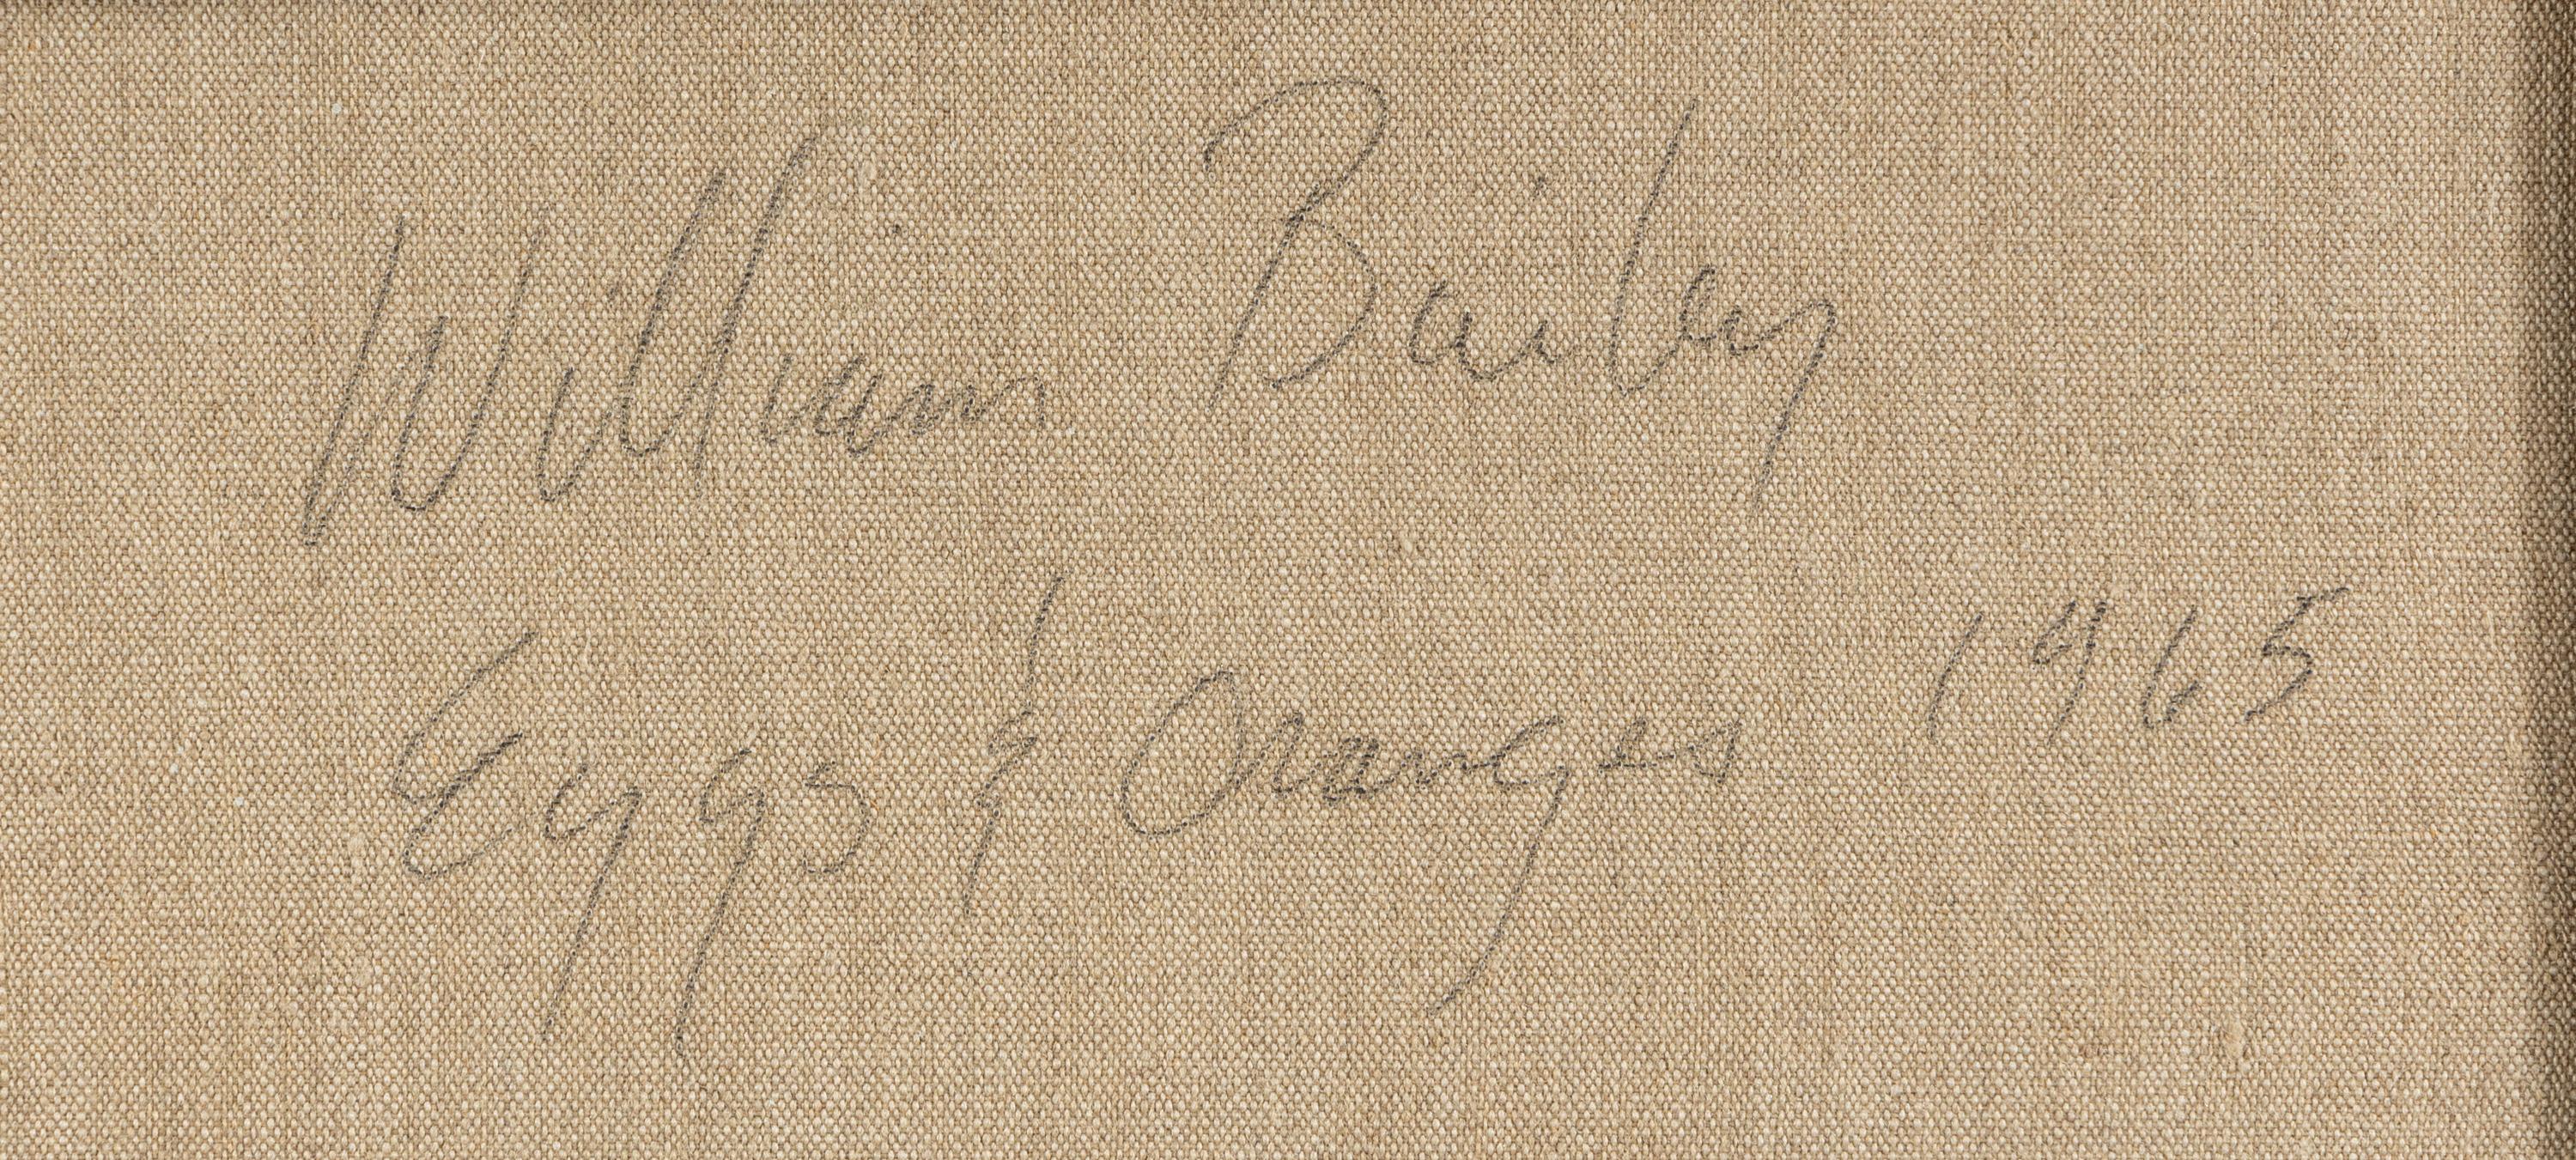 William Bailey
Eggs & Oranges 1965